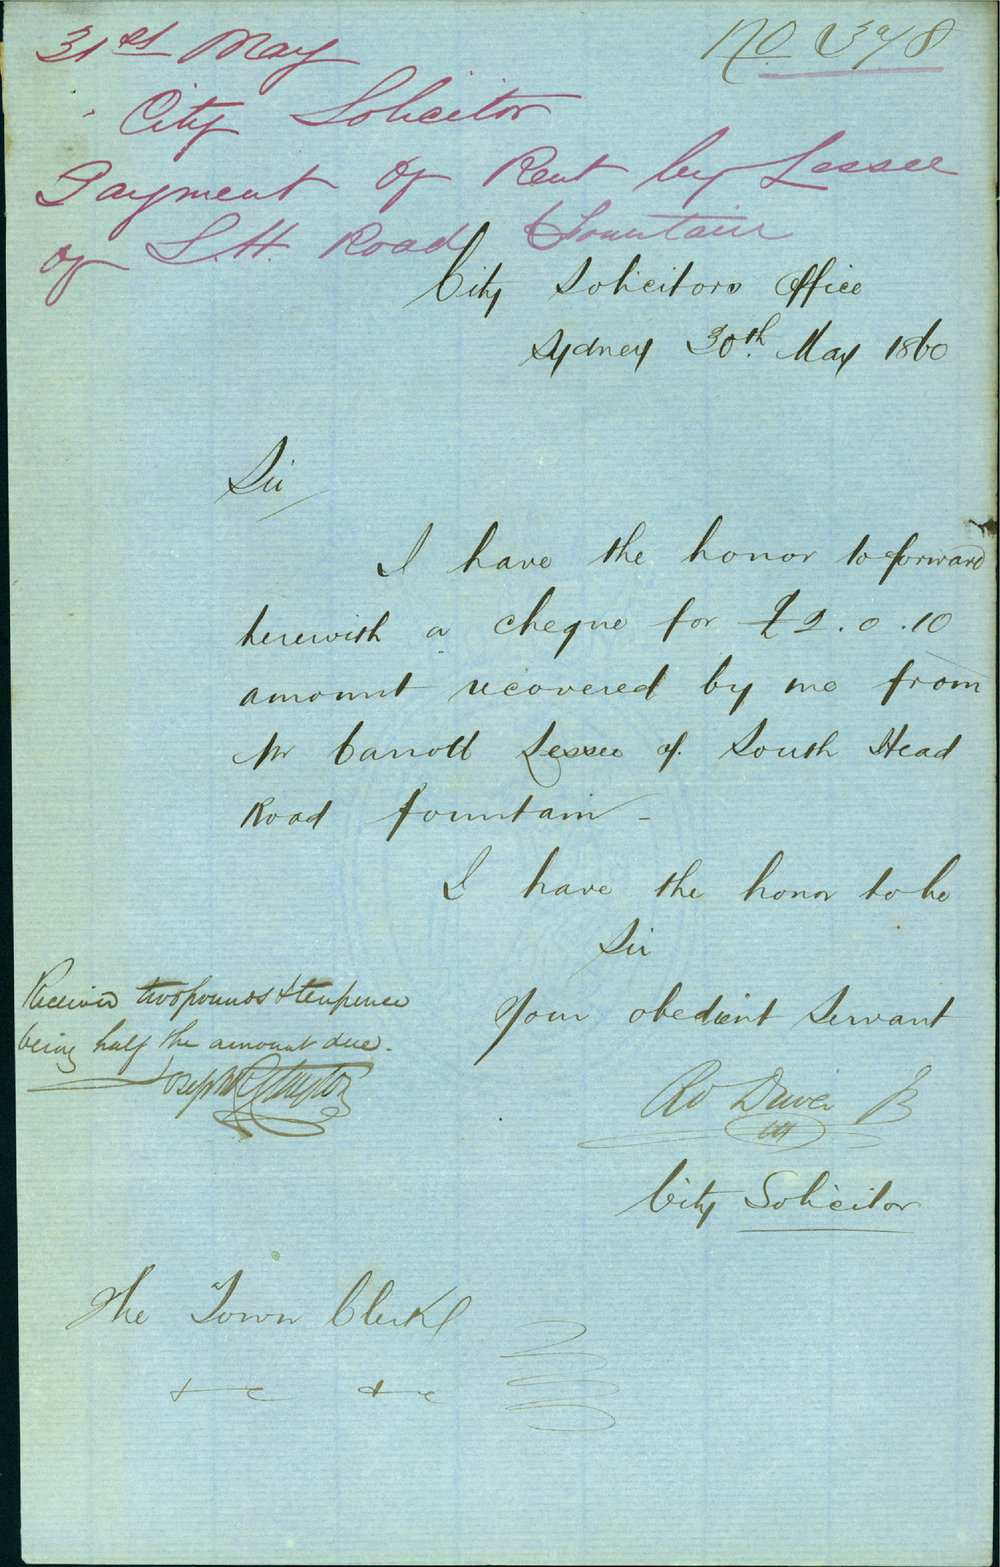 No 378
31st May
City Solicitor
Payment of Rent by Lessee
of S.H. Road Fountain
City Solicitors Office
Sydney 30th May 1860
Sir
I have the honor to forward
herewith a cheque for £2.0.10
amount recovered by me from
Mr Carroll Lessee of South Head
Road fountain -
I have the honor to be
Sir
Your obedient Servant
Rd Driver
City Solicitor
Received two pounds & tenpence
being half the amount due.
Joseph
The Town Clerk
&c &c